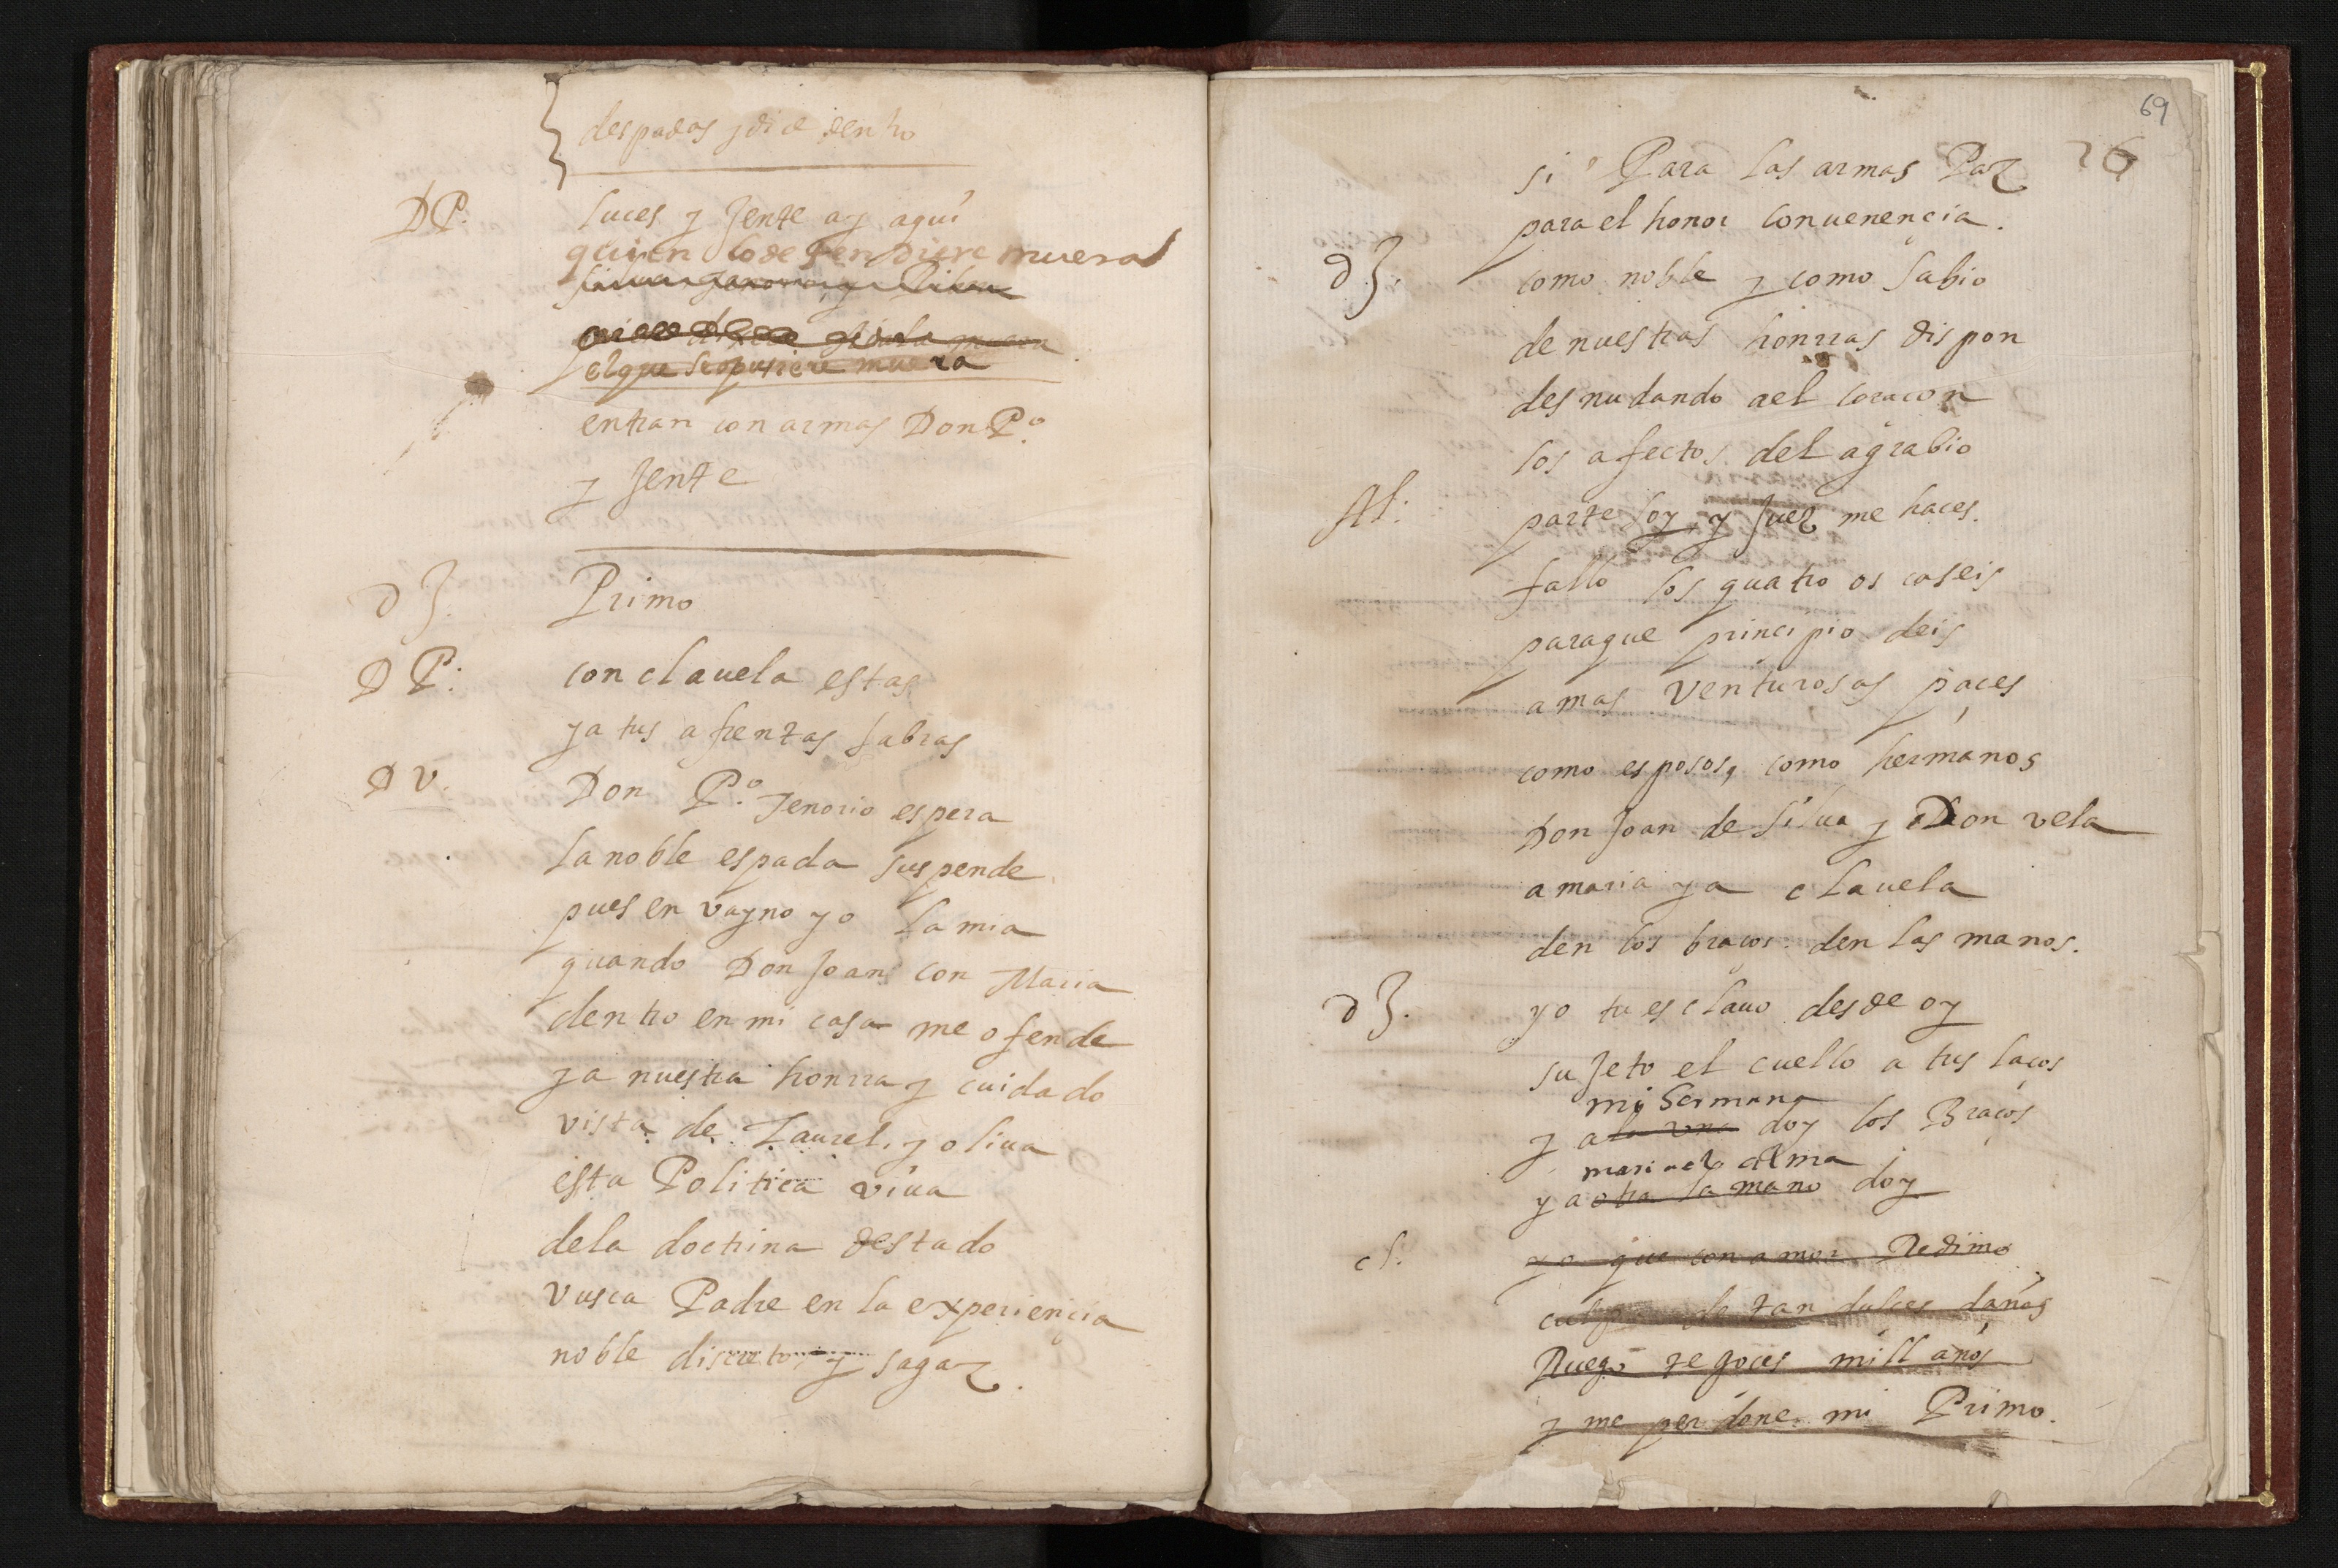 despadas y dice dentro
DP. luces y jente ay aqui
quien lo defendiere muera
el que se opusiere muera
entran con armas Don P.º
y jente
d J. Primo
D P. con clauela estas
ya tus afrentas sabras
D V. Don P.º Tenorio espera
la noble espada suspende
pues en vayno yo la mia
quando Don Joan con Maria
dentro en mi casa me ofende
ya nuestra honrra y cuidado
vista de Laurel, y oliua
esta Politica viua
dela doctrina destado
vusca Padre en la experiençia
noble discreto, y sagaz.
69
26
si Para las armas Paz
para el honor conuenençia.
d J. como noble y como sabio
de nuestras honrras dispon
desnudando ael coraçon
los afectos del agrabio
Al. parte soy, y Juez me haces.
fallo los quatro os caseis
paraque principio deis
a mas venturosas paçes
como esposos, como hermanos
Don Joan de Silua y Don vela
a maria ya clauela
den los braços. den las manos.
d J. yo tu esclauo desde oy
sujeto el cuello a tus laços
mi ermana
y a la vna doy los Braços
mari el alma
ya otra la mano doy
cl. yo que con amor Redimo
de tan dulces daños
Ruego te goces mill años
y me perdone mi Primo.